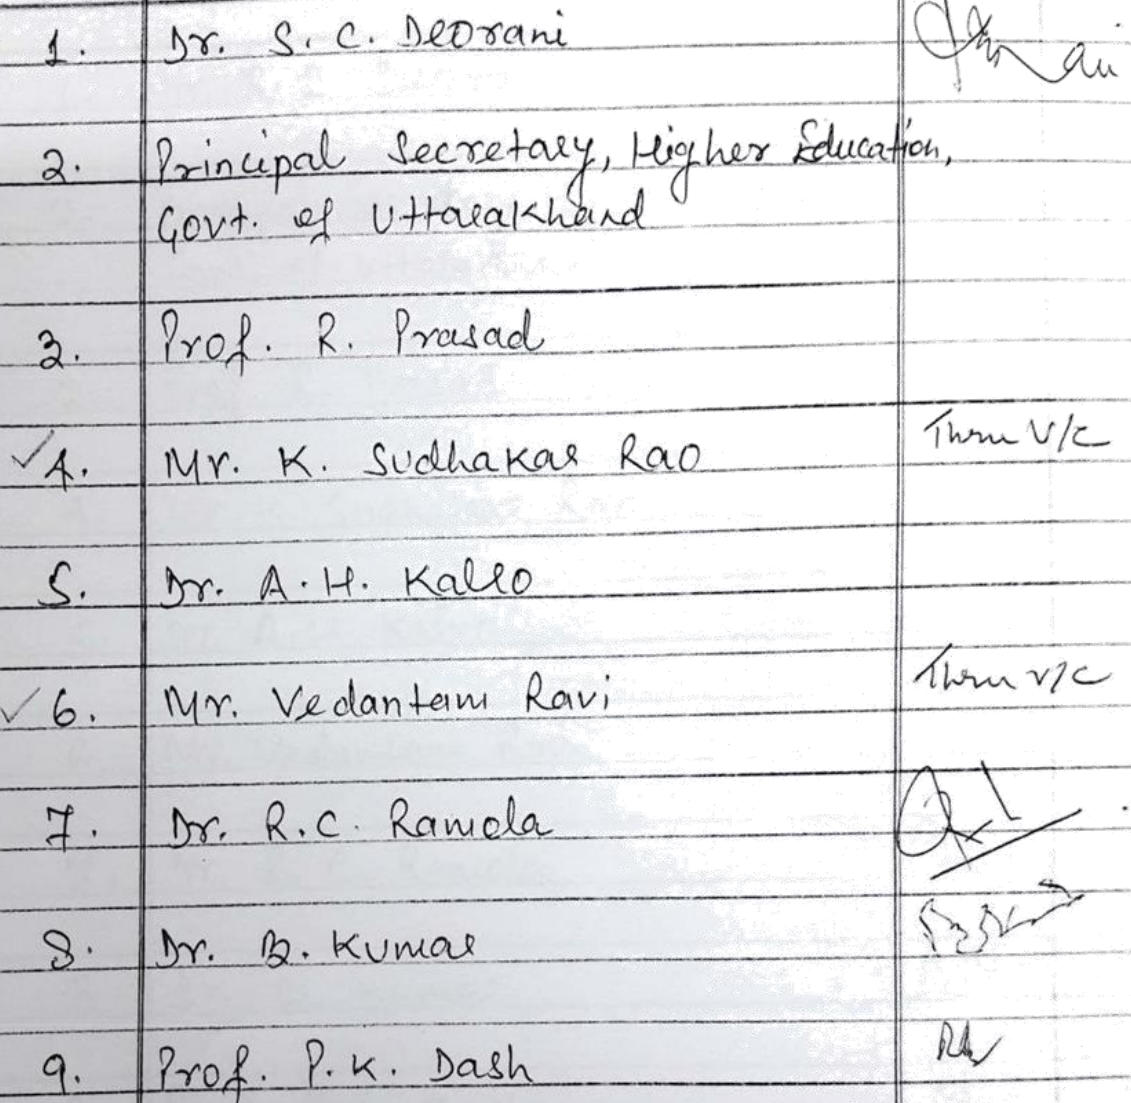 1. Dr. S. C. Deorani
2. Principal Secretary, Higher Education,
Govt. of Uttarakhand
3. Prof. R. Prasad
4. Mr. K. Sudhakar Rao Thru V/C
5. Dr. A. H. Kalro
6. Mr. Vedantam Ravi Thru V/C
7. Dr. R. C. Ramola
8. Dr. B. Kumar
9. Prof. P. K. Dash